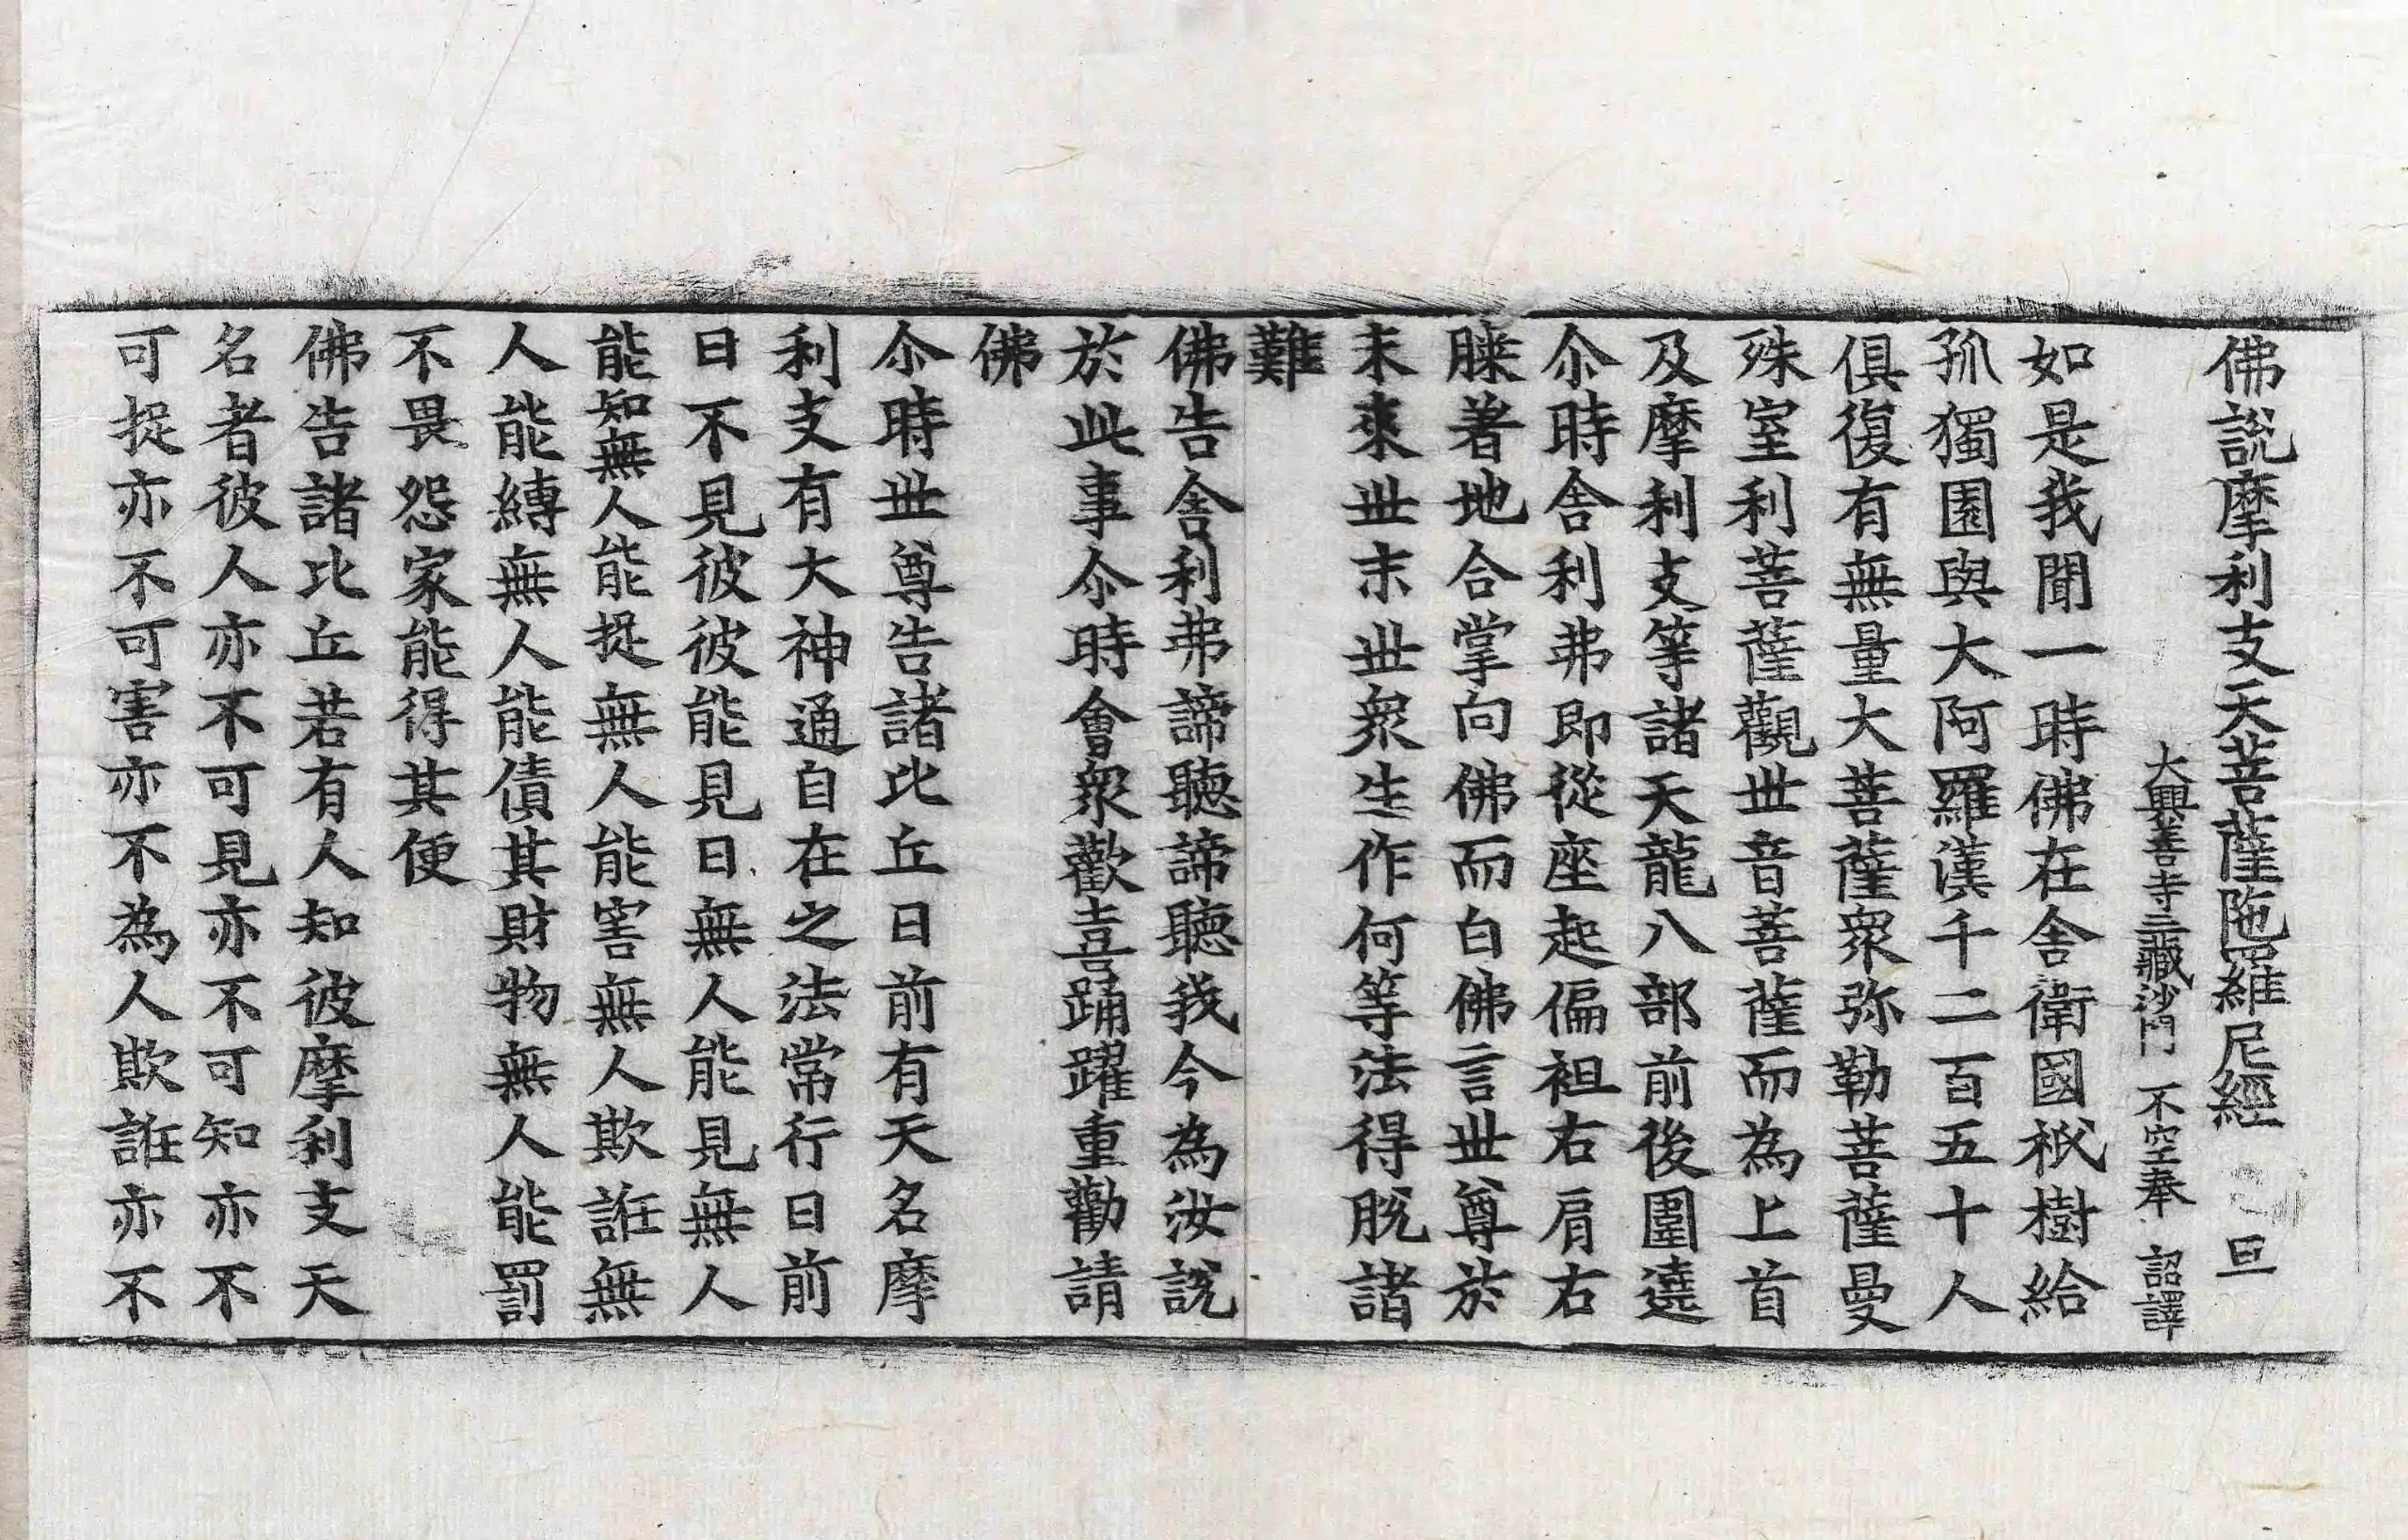 佛說摩利支天菩薩陁羅尼經 旦
大興善寺三藏沙門 不空奉 詔譯
如是我聞一時佛在舍衛國祇樹給
孤獨園與大阿羅漢千二百五十人
俱復有無量大菩薩衆弥勒菩薩曼
殊室利菩薩觀世音菩薩而為上首
及摩利支等諸天龍八部前後圍遶
尒時舍利弗即從座起偏袒右肩右
膝著地合掌向佛而白佛言世尊於
未來世末世衆生作何等法得脫諸
難
佛告舍利弗諦聽諦聽我今為汝說
於此事尒時會衆歡喜踊躍重勸請
佛
尒時世尊告諸比丘日前有天名摩
利支有大神通自在之法常行日前
日不見彼彼能見日無人能見無人
能知無人能捉無人能害無人欺誑無
人能縛無人能債其財物無人能罰
不畏怨家能得其便
佛告諸比丘若有人知彼摩利支天
名者彼人亦不可見亦不可知亦不
可捉亦不可害亦不為人欺誑亦不